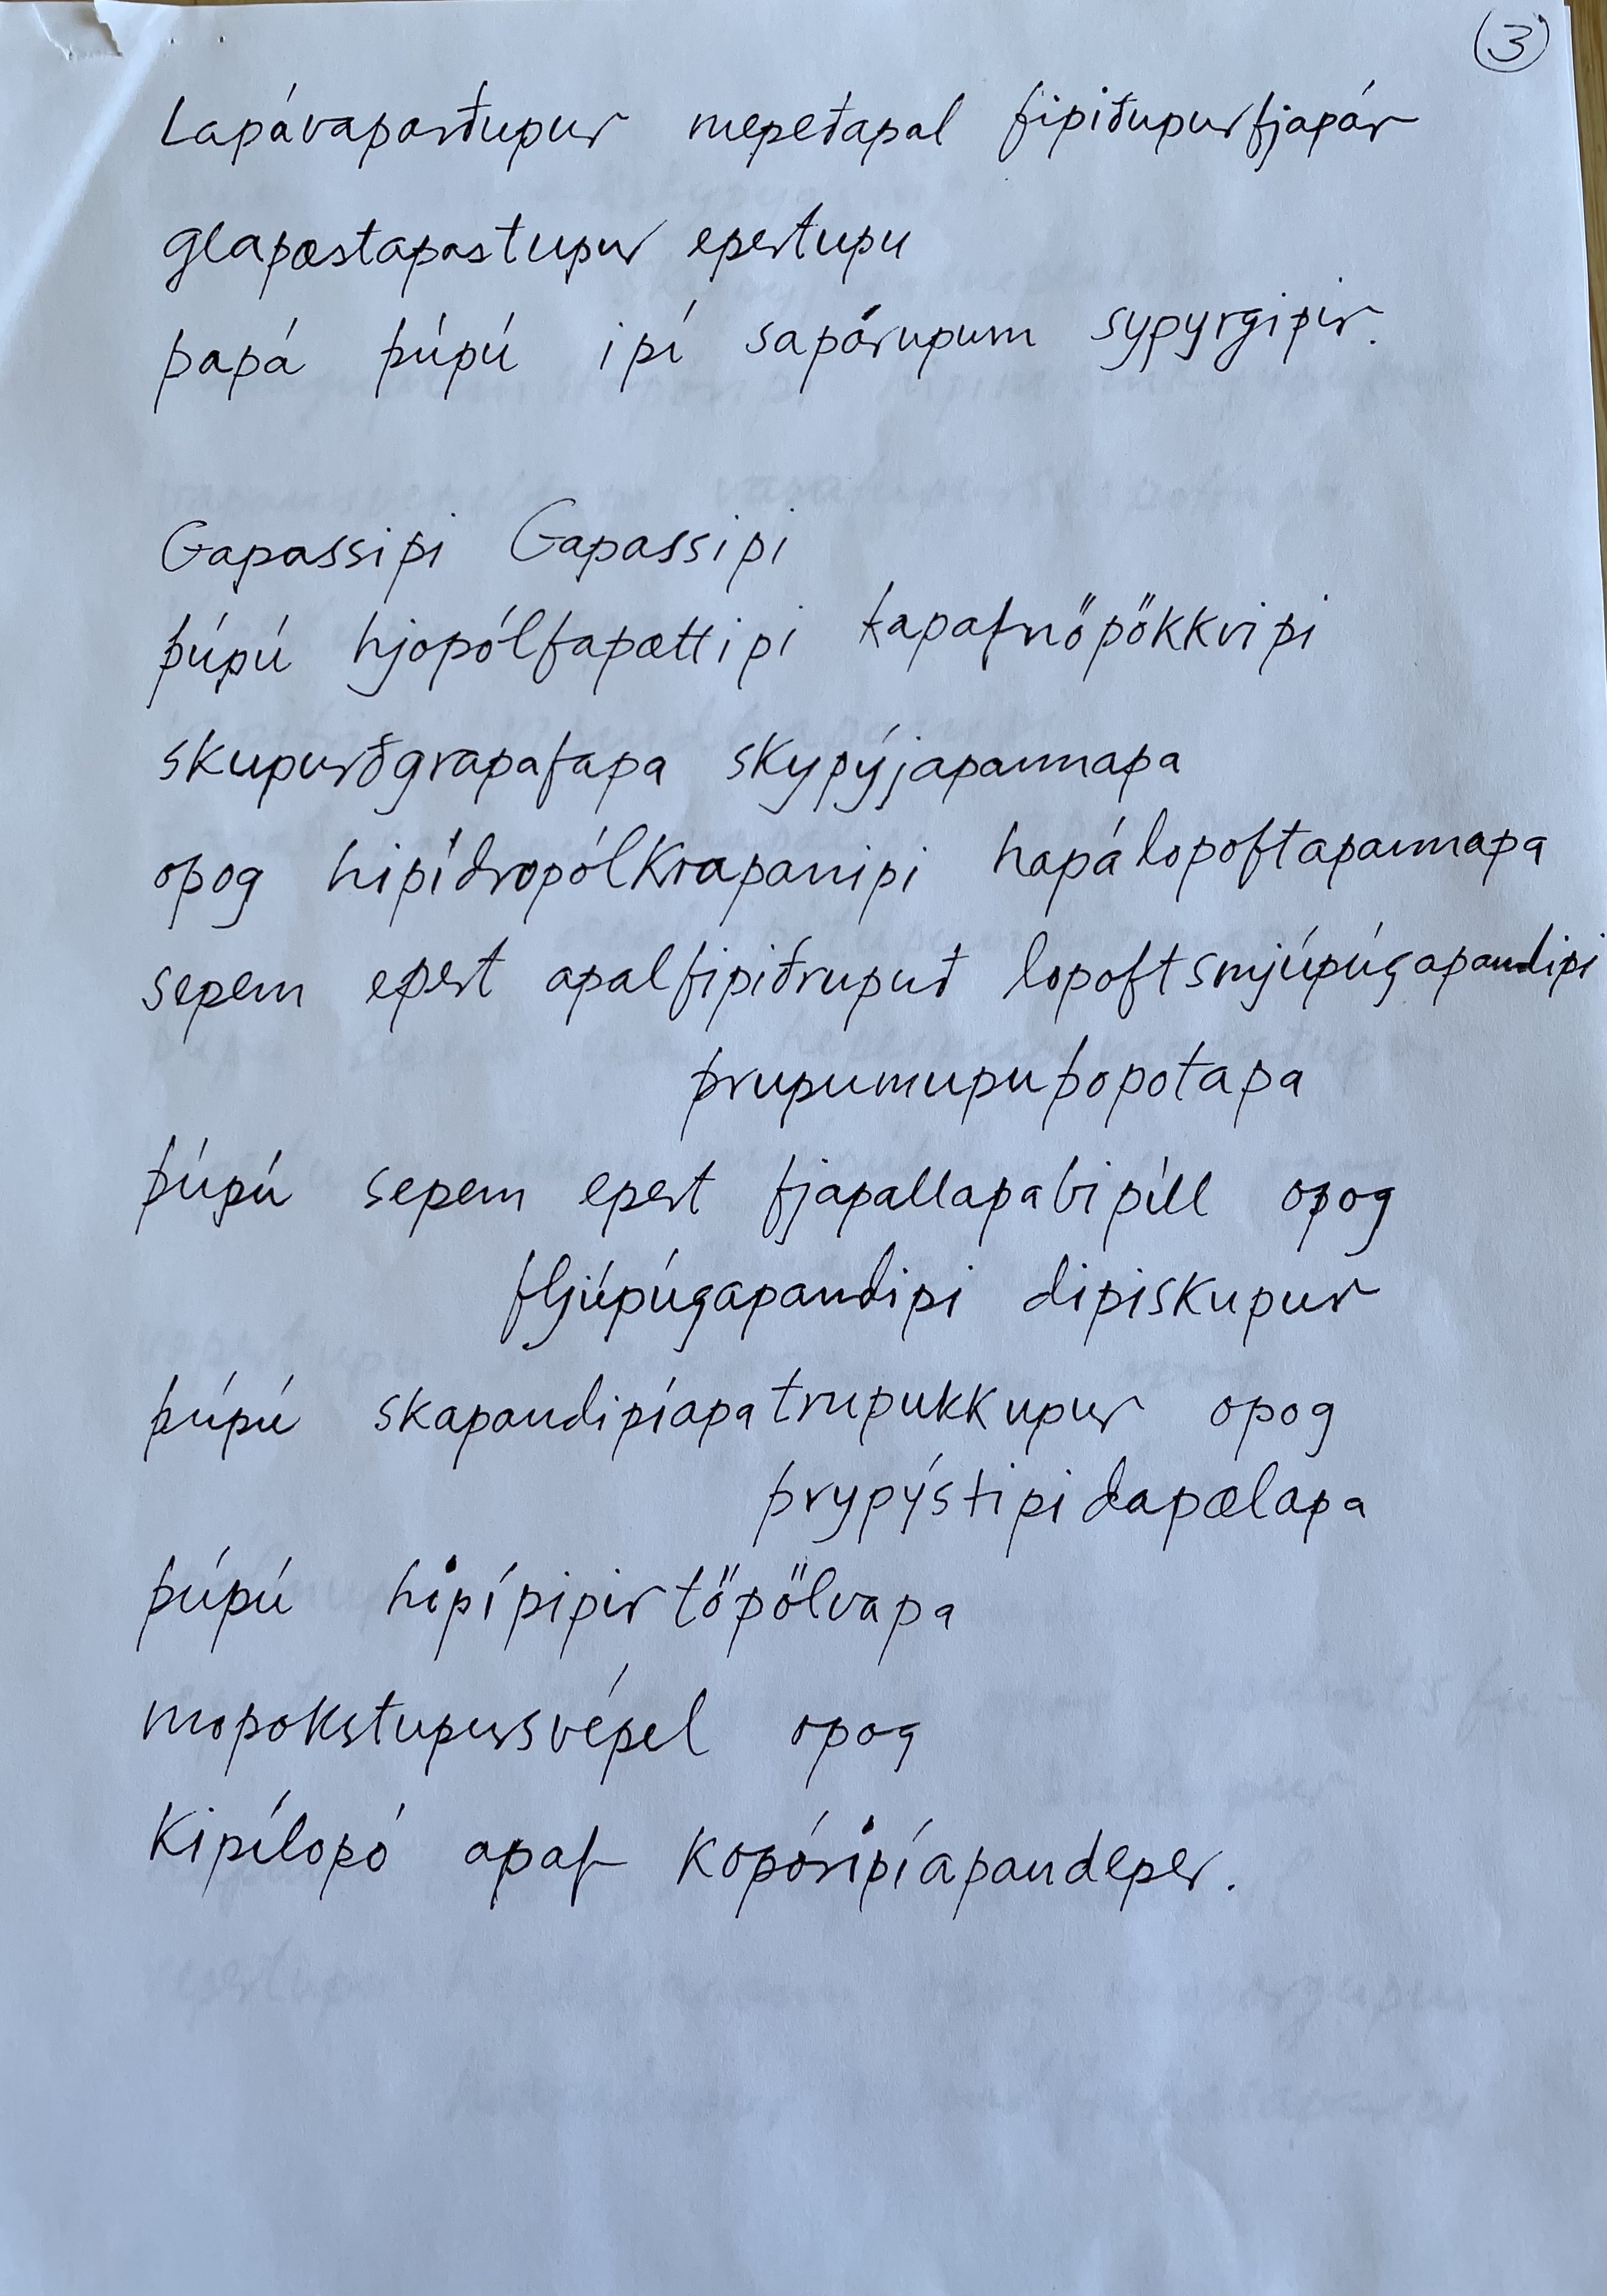 3
Lapávaparðupur mepeðapal fipiðupurfjapár
glapæstapastupur epertupu
þapá þúpú ipí sapárupum sypyrgipir.
Gapassipi Gapassipi
þúpú hjopólfapættipi tapafnöpökkvipi
skupurðgrapafapa skypýjapannapa
opog hipídropólkrapanipi hapálopoftapannapa
sepem epert apalfipiðrupuð lopoftsmjúpúgapandipi
þrupumupuþopotapa
þúpú sepem epert fjapallapabipíll opog
fljúpúgapandipi dipiskupur
þúpú skapandipíapatrupukkupur opog
þrypýstipidapælapa
þúpú hipípipirtöpölvapa
mopokstupursvépel opog
Kipílopó apaf kopóripíapandeper.